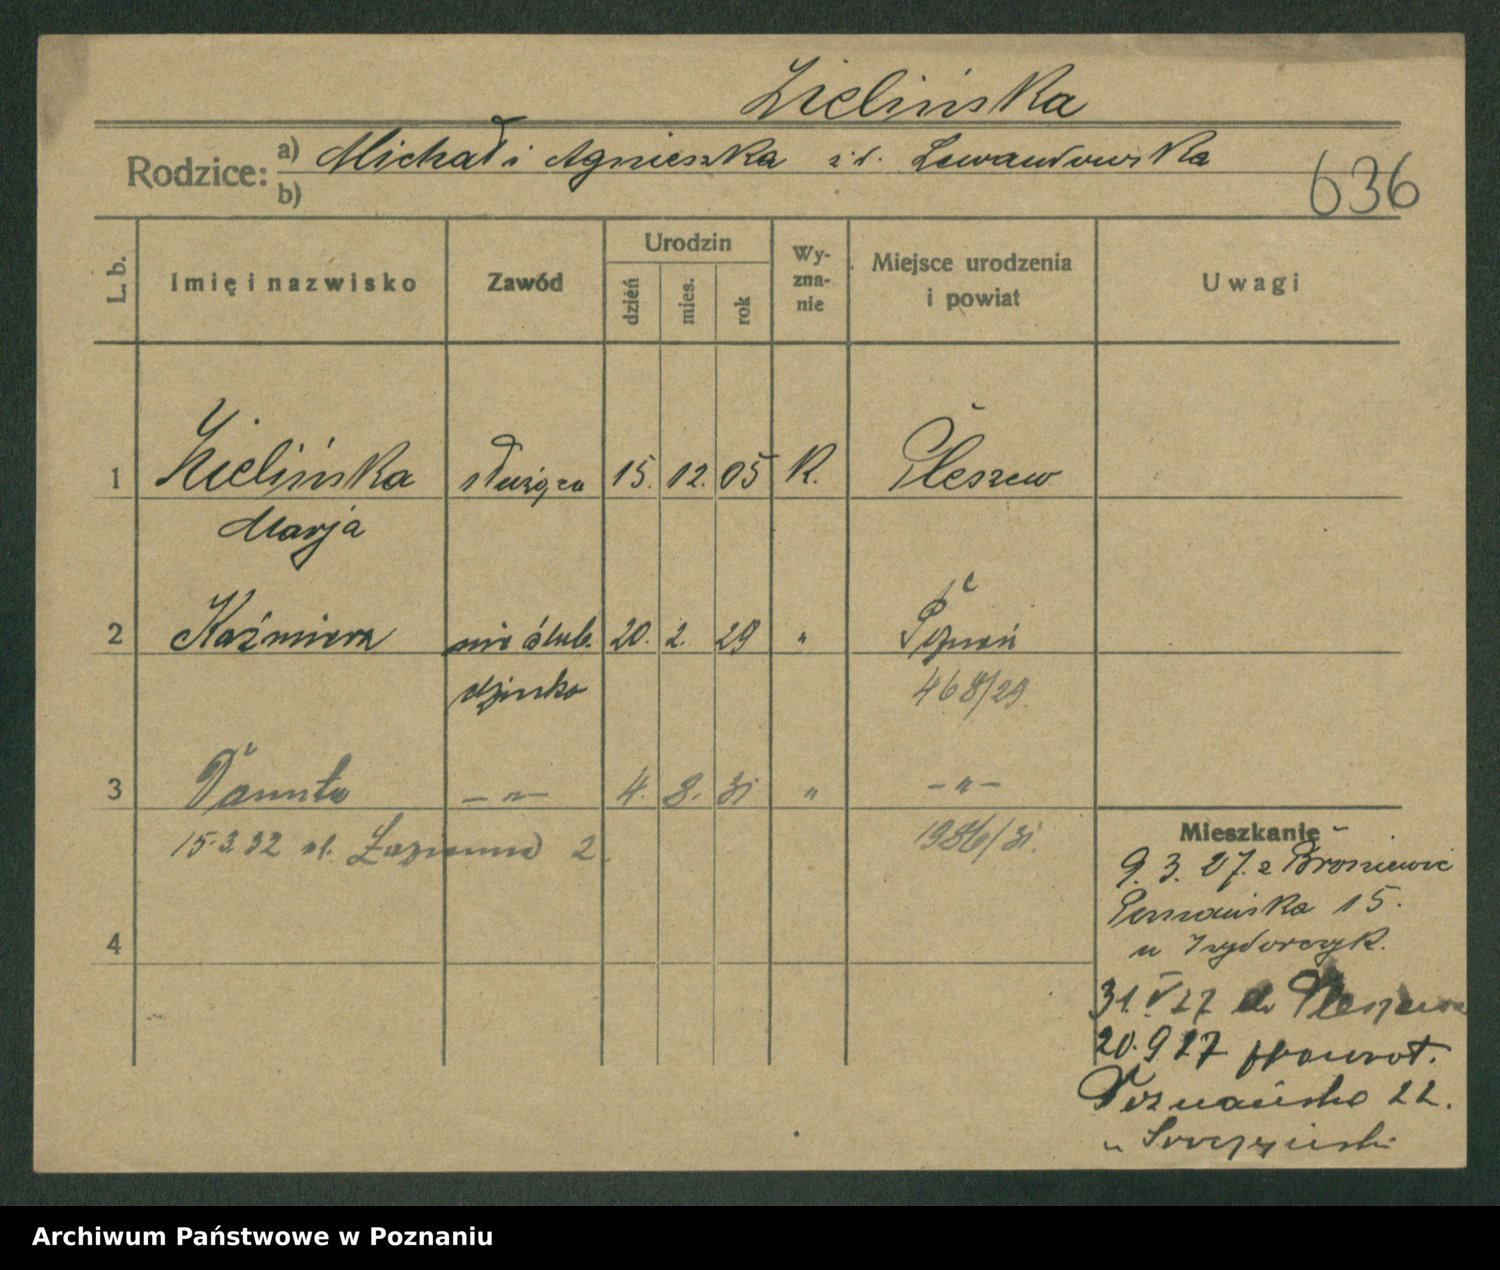 Zielińska
Rodzice: a) Michał i Agnieszka z d. Lewandowska
b)
636
L. b. Imię i nazwisko Zawód Urodzin dzień mies. rok Wyznanie Miejsce urodzenia i powiat Uwagi
1 Zielińska służąca 15. 12. 05 K. Pleszew
Marja
2 Kaźmiera nieślub. 20. 2. 29 " Poznań
dziecko 468/29
3 Danuta — " — 4. 8. 31 " — " —
15.3.32 ul. Łazienna 2. 1986/31.
Mieszkanie
9. 3. 27. z
Poznańska 15.
u Izydorczyk.
4
31. V 27 do Pleszewa
20. 9 27 powrot.
Poznańska 22.
u
Archiwum Państwowe w Poznaniu